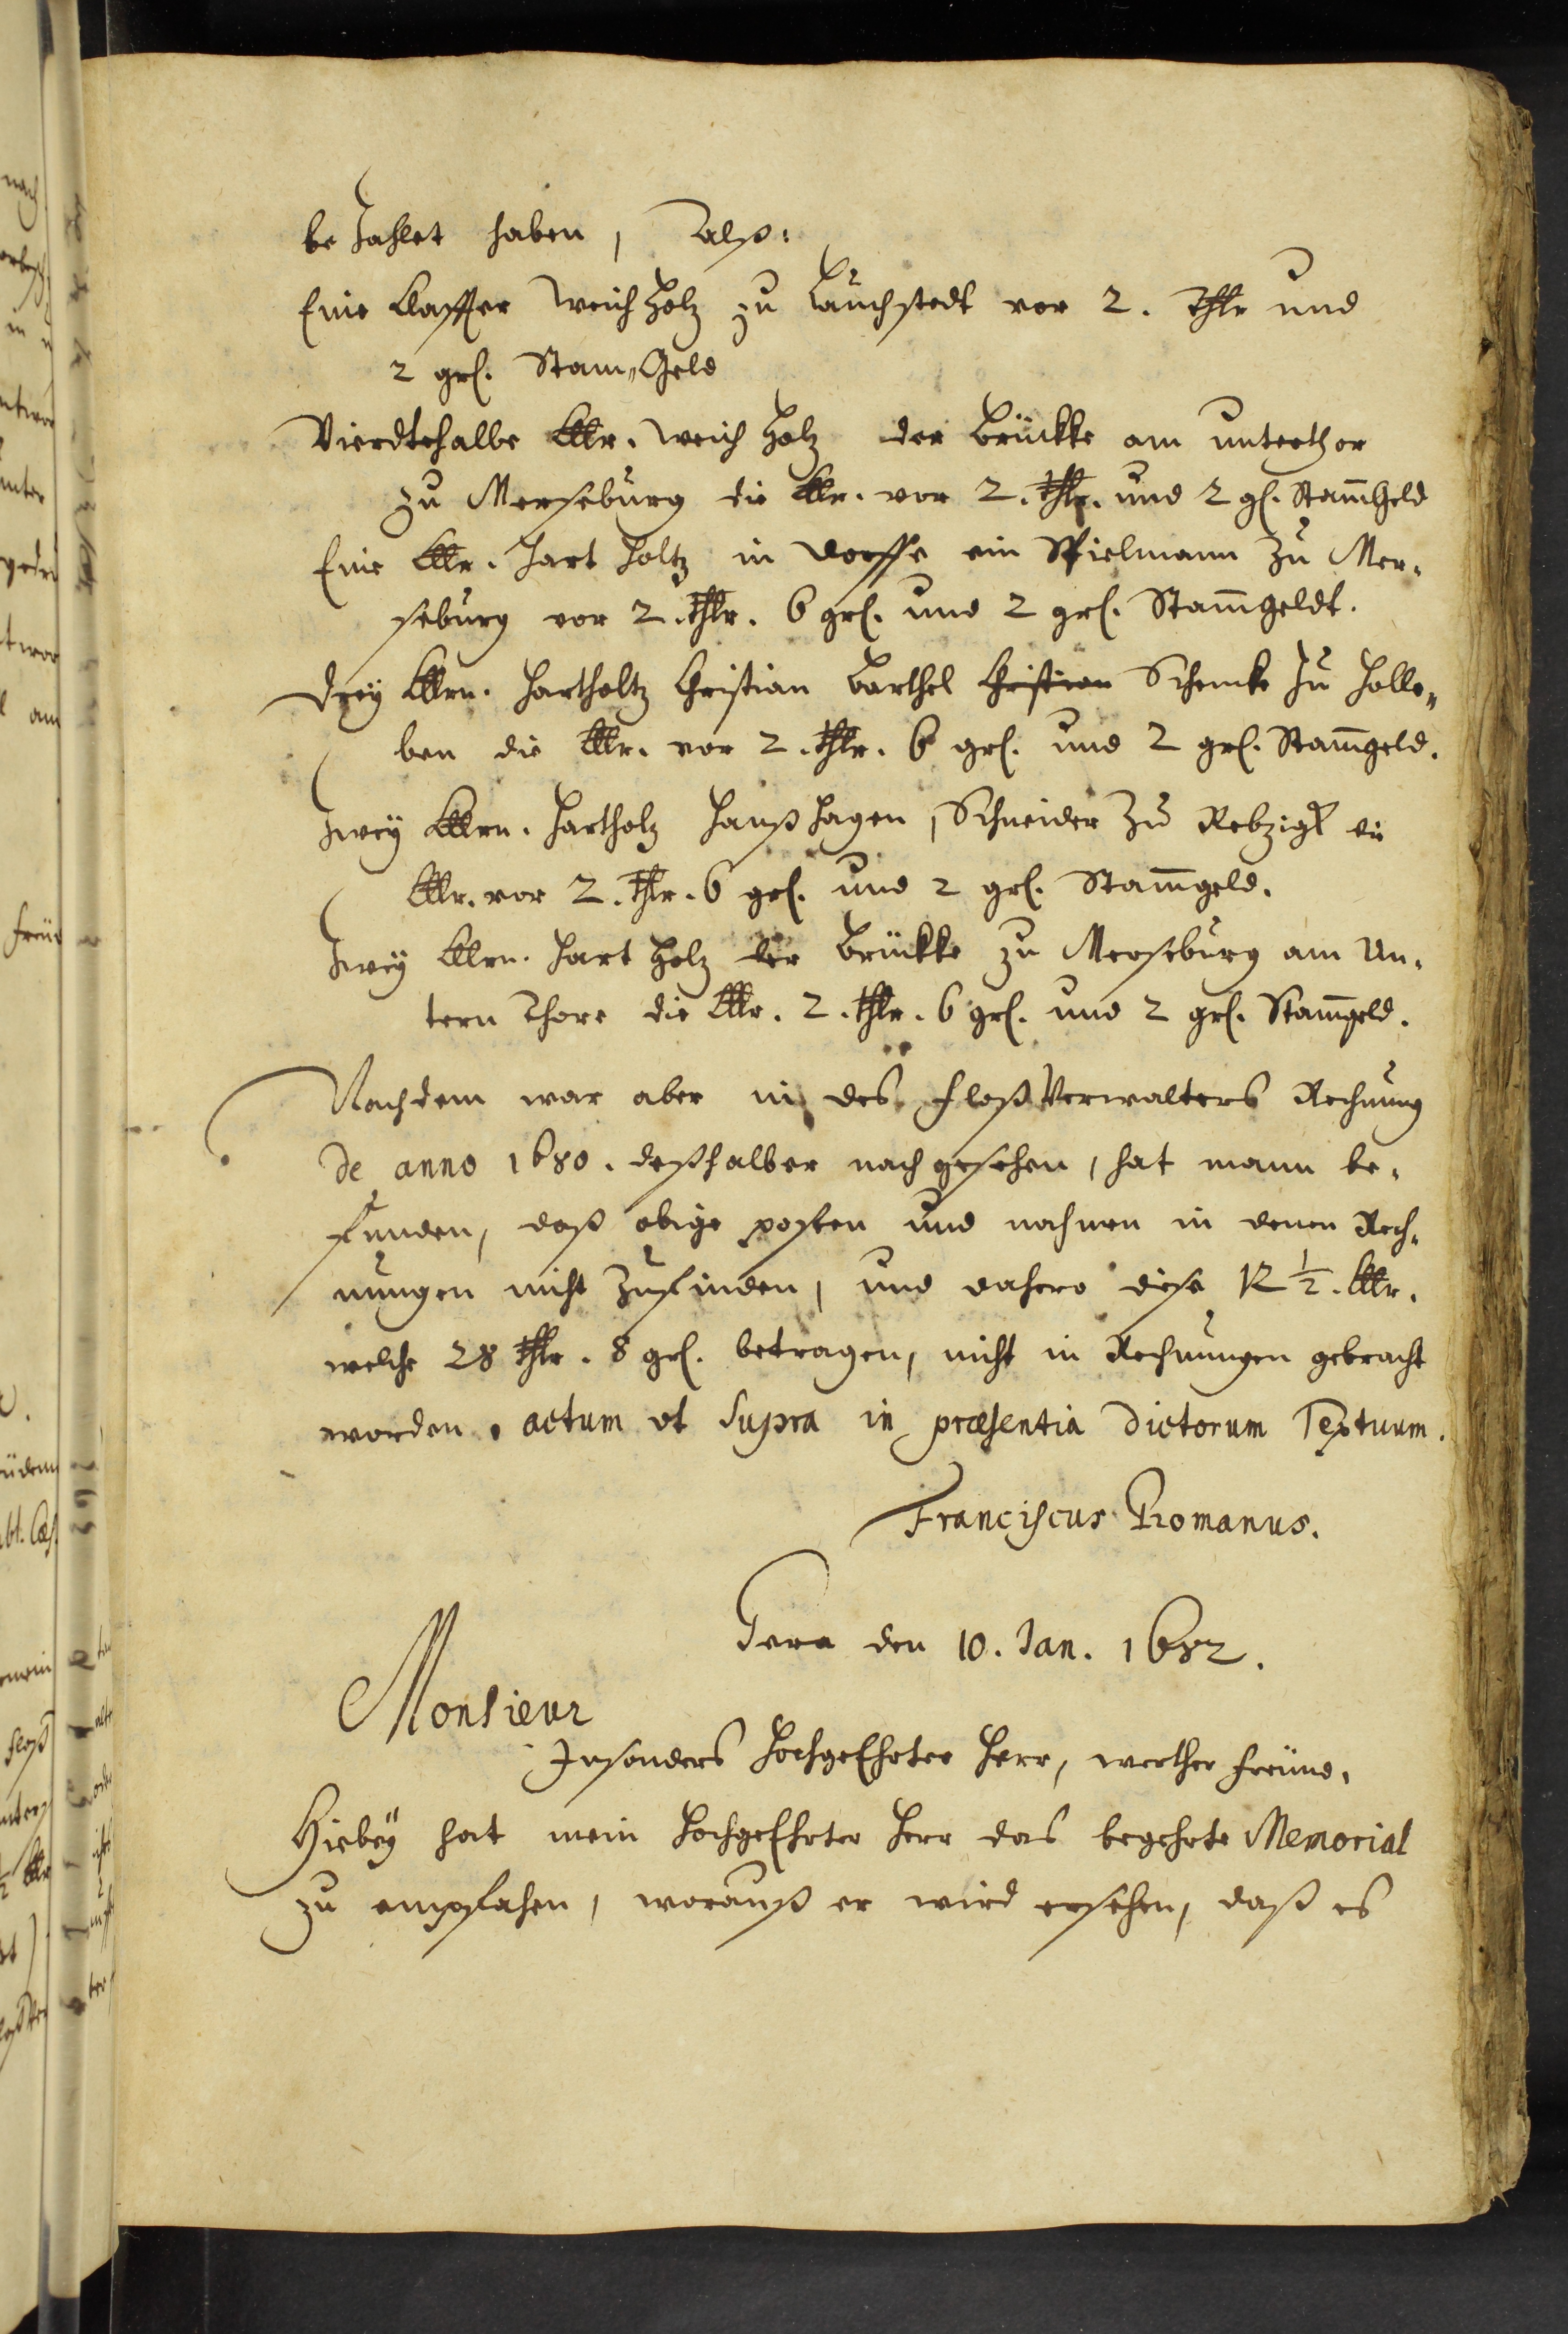 bezahlet haben, Alß:
Eine Claffter weich Holz zu Lauchstedt vor 2. Thlr und
2 grl. Stam„Geld
Vierdtehalbe Cllr. weich Holz der Brückke am unterthor
zu Merseburg die Cllr. vor 2. thlr. und 2 gl. Stam̄Geld
Eine Cllr. Hart Holtz in Dorffe ein Spielmann zu Mer„
seburg vor 2. thlr. 6 grl. und 2 grl. Stam̄geldt.
Drey Cllrn. Hartholtz Christian Barthel Christian Schencke zu Holle„
ben die Cllr. vor 2. thlr. 6 grl. und 2 grl. Stam̄geld.
Zwey Cllrn. Hartholz Hanß Hagen, Schneider zu die
Cllr. vor 2. thlr. 6 grl. und 2 grl. Stam̄geld.
Zwey Cllrn. Hart Holz der Brückke zu Merseburg am Un„
tern Thore die Cllr. 2. thlr. 6 grl. und 2 grl. Stam̄geld.
Nachdem war aber in des FloßVerwalters Rechnung
de anno 1680. deßhalber nach gesehen, hat mann be„
funden, daß obige posten und nahmen in denen Rech„
nungen nicht zufinden, und dahero diese 12 ½. Cllr.
welche 28 thlr. 8 grl. betragen, nicht in Rechnungen gebracht
worden. actum ut supra in præsentia dictorum Textuum.
Franciscus Romanus.
Gera den 10. Jan. 1682.
Monsieur
Insonders HochgeEhrter Herr, werther Freünd,
Hiebey hat mein HochgeEhrter Herr das begehrte Memorial
zu empfahen, worauß er wird ersehen, daß es